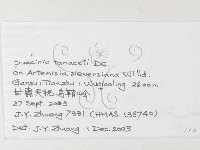 Puccinia tanaceti DC.
on Artemisia sieversiana Willd.
Gansu: Tianzhu: Wugaoling 2800m
甘肃天祝 乌鞘岭
27 Sept. 2003
J.Y. Zhuang 7331 (HMAS 138740)
Det. J.Y. Zhuang, Dec. 2003